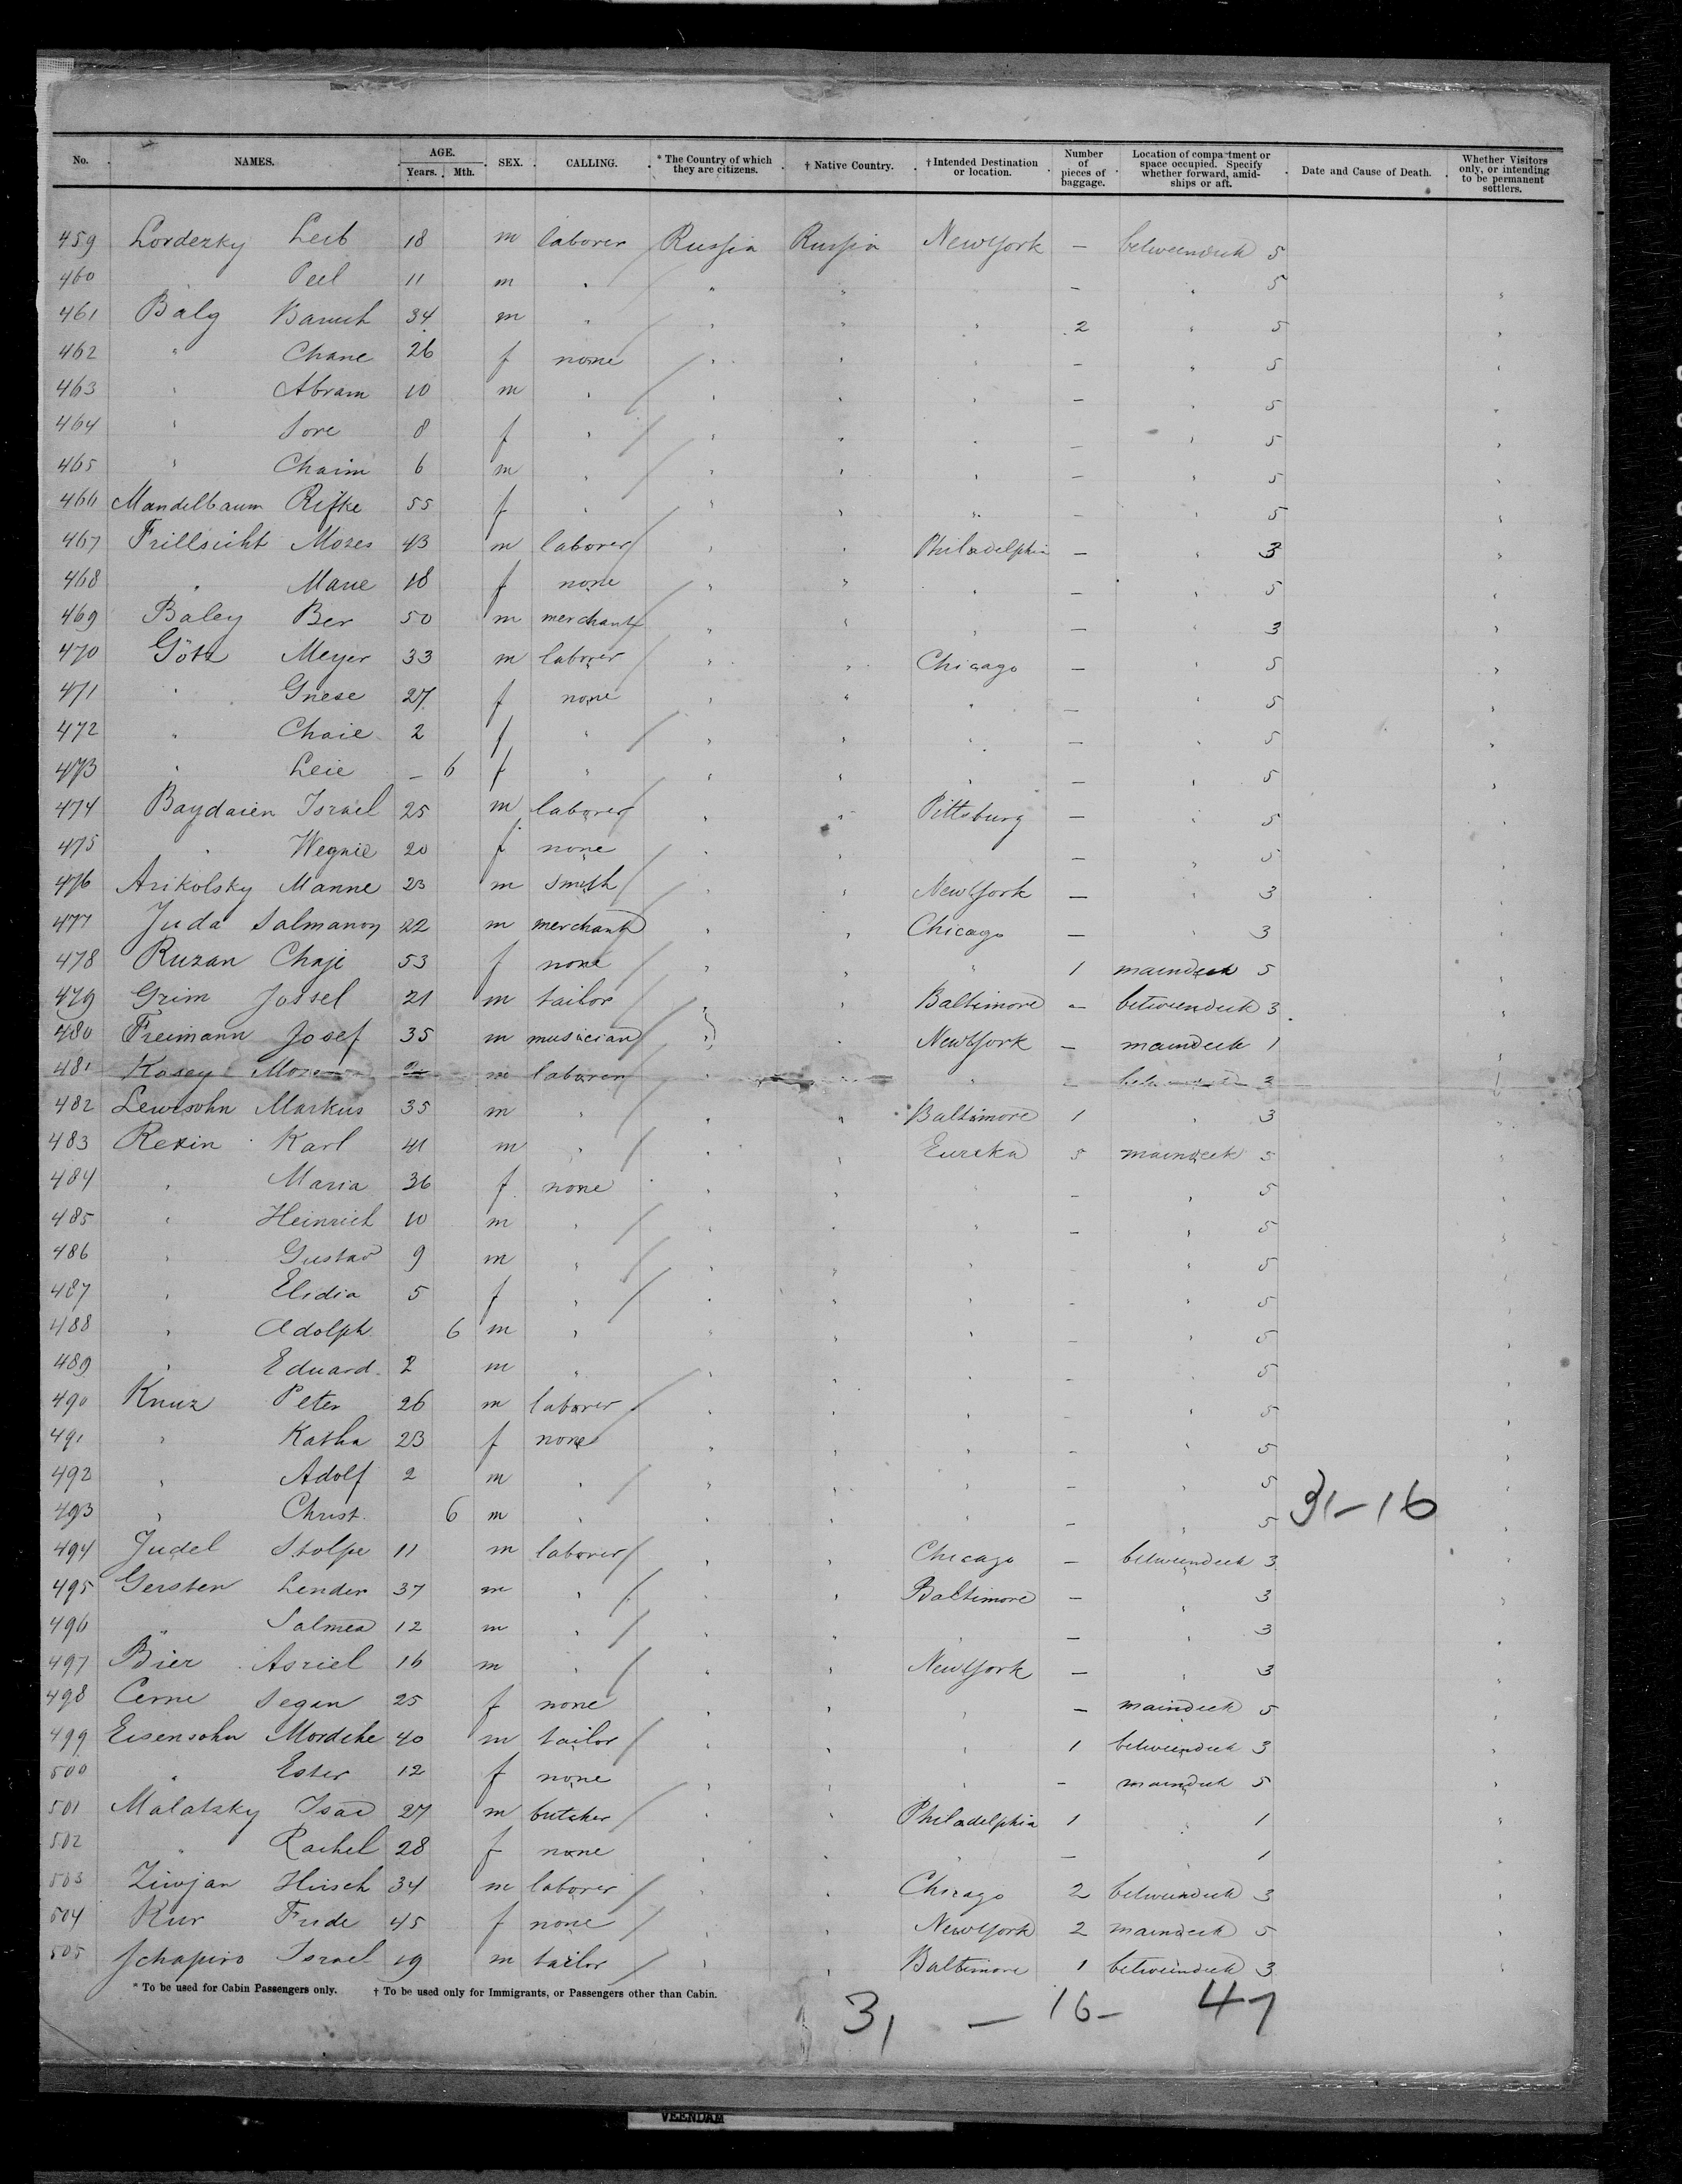 No. NAMES. AGE. Years. Mth. SEX. CALLING. * The Country of which they are citizens. † Native Country. † Intended Destination or location. Number of pieces of baggage. Location of compartment or space occupied. Specify whether forward, amidships or aft. Date and Cause of Death. Whether Visitors only, or intending to be permanent settlers.
459 Lordezky Leib 18 m laborer Russia Russia New York — betweendeck 5
460 " Peel 11 m " " " " — " 5 "
461 Balg Baruch 34 m " " " " 2 " 5 "
462 " Chane 26 f none " " " — " 5 "
463 " Abram 10 m " " " " — " 5 "
464 " Sore 8 f " " " " — " 5 "
465 " Chaim 6 m " " " " — " 5 "
466 Mandelbaum Rifke 55 f " " " " — " 5 "
467 Frillsicht Mozes 43 m laborer " " Philadelphia — " 3 "
468 " Marie 18 f none " " " — " 5 "
469 Baley Ber 50 m merchant " " " — " 3 "
470 Götz Meyer 33 m laborer " " Chicago — " 5 "
471 " Gnese 27 f none " " " — " 5 "
472 " Chaie 2 f " " " " — " 5 "
473 " Leie — 6 f " " " " — " 5 "
474 Baydaien Israel 25 m laborer " " Pittsburg — " 5 "
475 " Wegnie 20 f none " " " — " 5 "
476 Arikolsky Manne 23 m smith " " New York — " 3 "
477 Juda Salmanov 22 m merchant " " Chicago — " 3 "
478 Ruzan Chaje 53 f none " " " 1 maindeck 5 "
479 Grim Jossel 21 m tailor " " Baltimore — betweendeck 3 "
480 Freimann Josef 35 m musician " " New York — maindeck 1 "
481 Kasey m laborer " " " — 3 "
482 Lewisohn Markus 35 m " " " Baltimore 1 " 3 "
483 Rezin Karl 41 m " " " Eureka 5 maindeck 5 "
484 " Maria 36 f none " " " — " 5 "
485 " Heinrich 10 m " " " " — " 5 "
486 " Gustav 9 m " " " " " 5 "
487 " Elidia 5 f " " " " — " 5 "
488 " Adolph 6 m " " " " — " 5 "
489 " Eduard 2 m " " " " — " 5 "
490 Knuz Peter 26 m laborer " " " — " 5 "
491 " Katha 23 f none " " " — " 5 "
492 " Adolf 2 m " " " " — " 5 "
493 " Christ. 6 m " " " " — " 5 31-16 "
494 Judel Stolpe 11 m laborer " " Chicago — betweendeck 3 "
495 Gersten Lender 37 m " " " Baltimore — " 3 "
496 " Salmea 12 m " " " " — " 3 "
497 Bier Asriel 16 m " " " New York — " 3 "
498 Cerne Segan 25 f none " " " — maindeck 5 "
499 Eisensohn Mordche 40 m tailor " " " 1 betweendeck 3 "
500 " Ester 12 f none " " " — maindeck 5 "
501 Malatzky Isac 27 m butcher " " Philadelphia 1 " 1 "
502 " Rachel 28 f none " " " — " 1 "
503 Ziwjan Hirsch 34 m laborer " " Chicago 2 betweendeck 3 "
504 Kur Fride 45 f none " " New York 2 maindeck 5 "
505 Schapiro Israel 19 m tailor " " Baltimore 1 betweendeck 3 "
* To be used for Cabin Passengers only. † To be used only for Immigrants, or Passengers other than Cabin.
31 — 16 — 47
VEENDAM